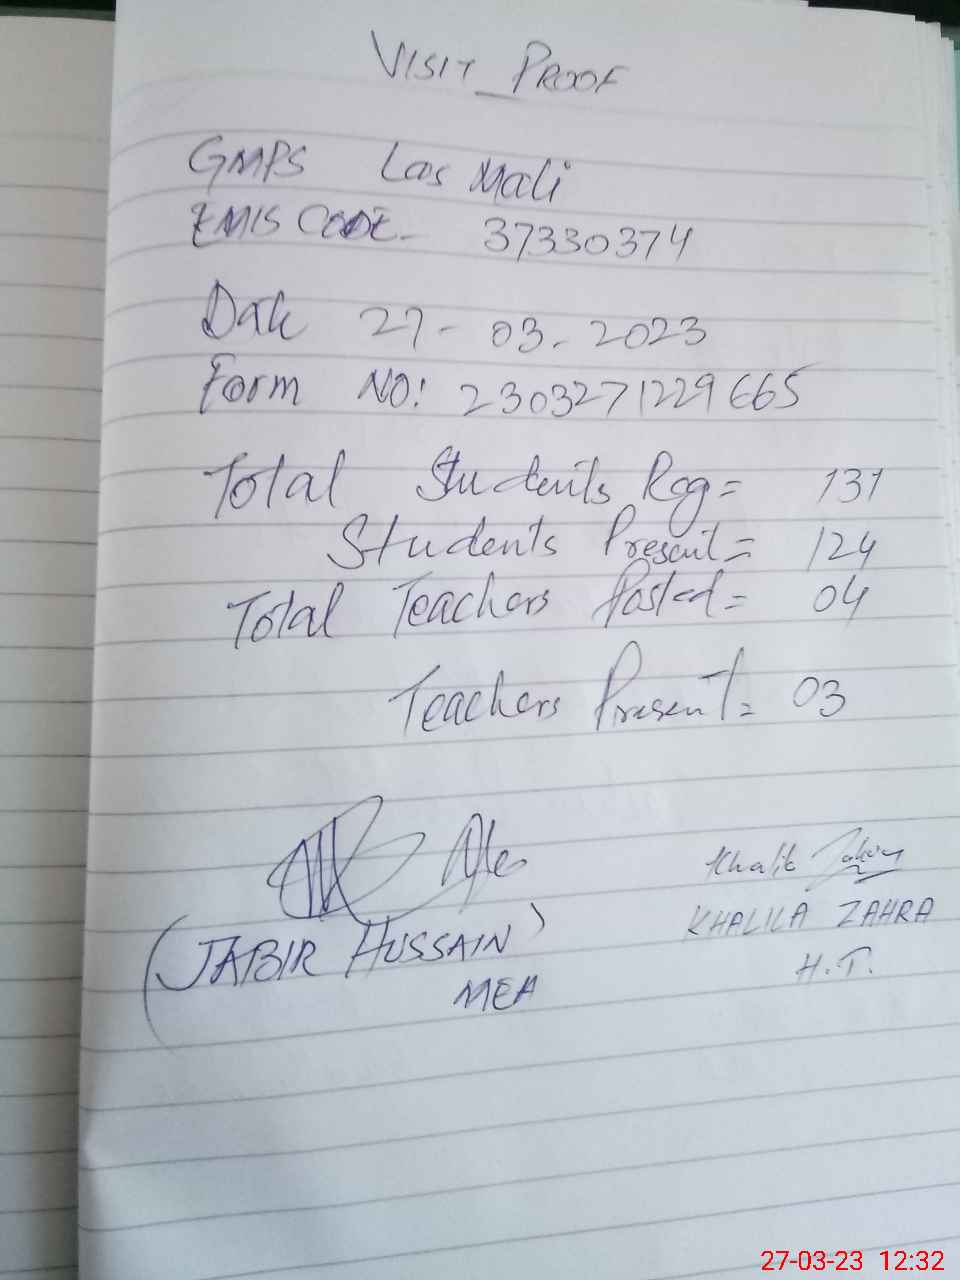 VISIT PROOF
GMPS Las Mali
EMIS CODE- 37330374
Date 27-03-2023
Form NO: 2303271229665
Total Students Reg= 131
Students Present= 124
Total Teachers Posted= 04
Teachers Present= 03
(JABIR HUSSAIN)
MEA
KHALILA ZAHRA
H.T.
27-03-23 12:32